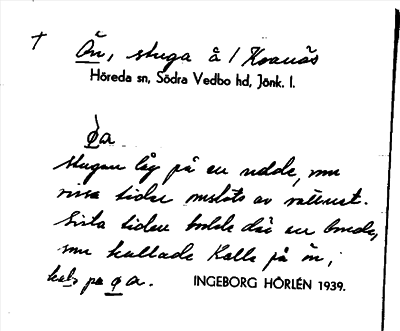 † Ön, stuga å / Kvanås
Höreda sn, Södra Vedbo hd, Jönk. l.
ø̀a
stugan låg på en udde, som
vissa tider omslöts av vattnet.
Sista tiden bodde där en bonde,
som kallade Kalle på ön,
kals pa øa. INGEBORG HÖRLÉN 1939.